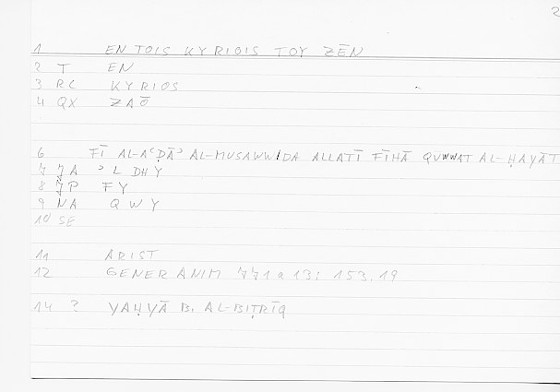 2
1 EN TOIS KYRIOIS TOY ZĒN
2 T EN
3 RC KYRIOS
4 QX ZAŌ
6 FĪ AL-AʿḌĀʾ AL-MUSAWWIDA ALLATĪ FĪHĀ QUWWAT AL-ḤAYĀT
7 JA ʾL DHY
8 JP FY
9 NA QWY
10 SE
11 ARIST
12 GENER ANIM 771a13; 153.19
14 ? YAḤYĀ B. AL-BIṬRĪQ